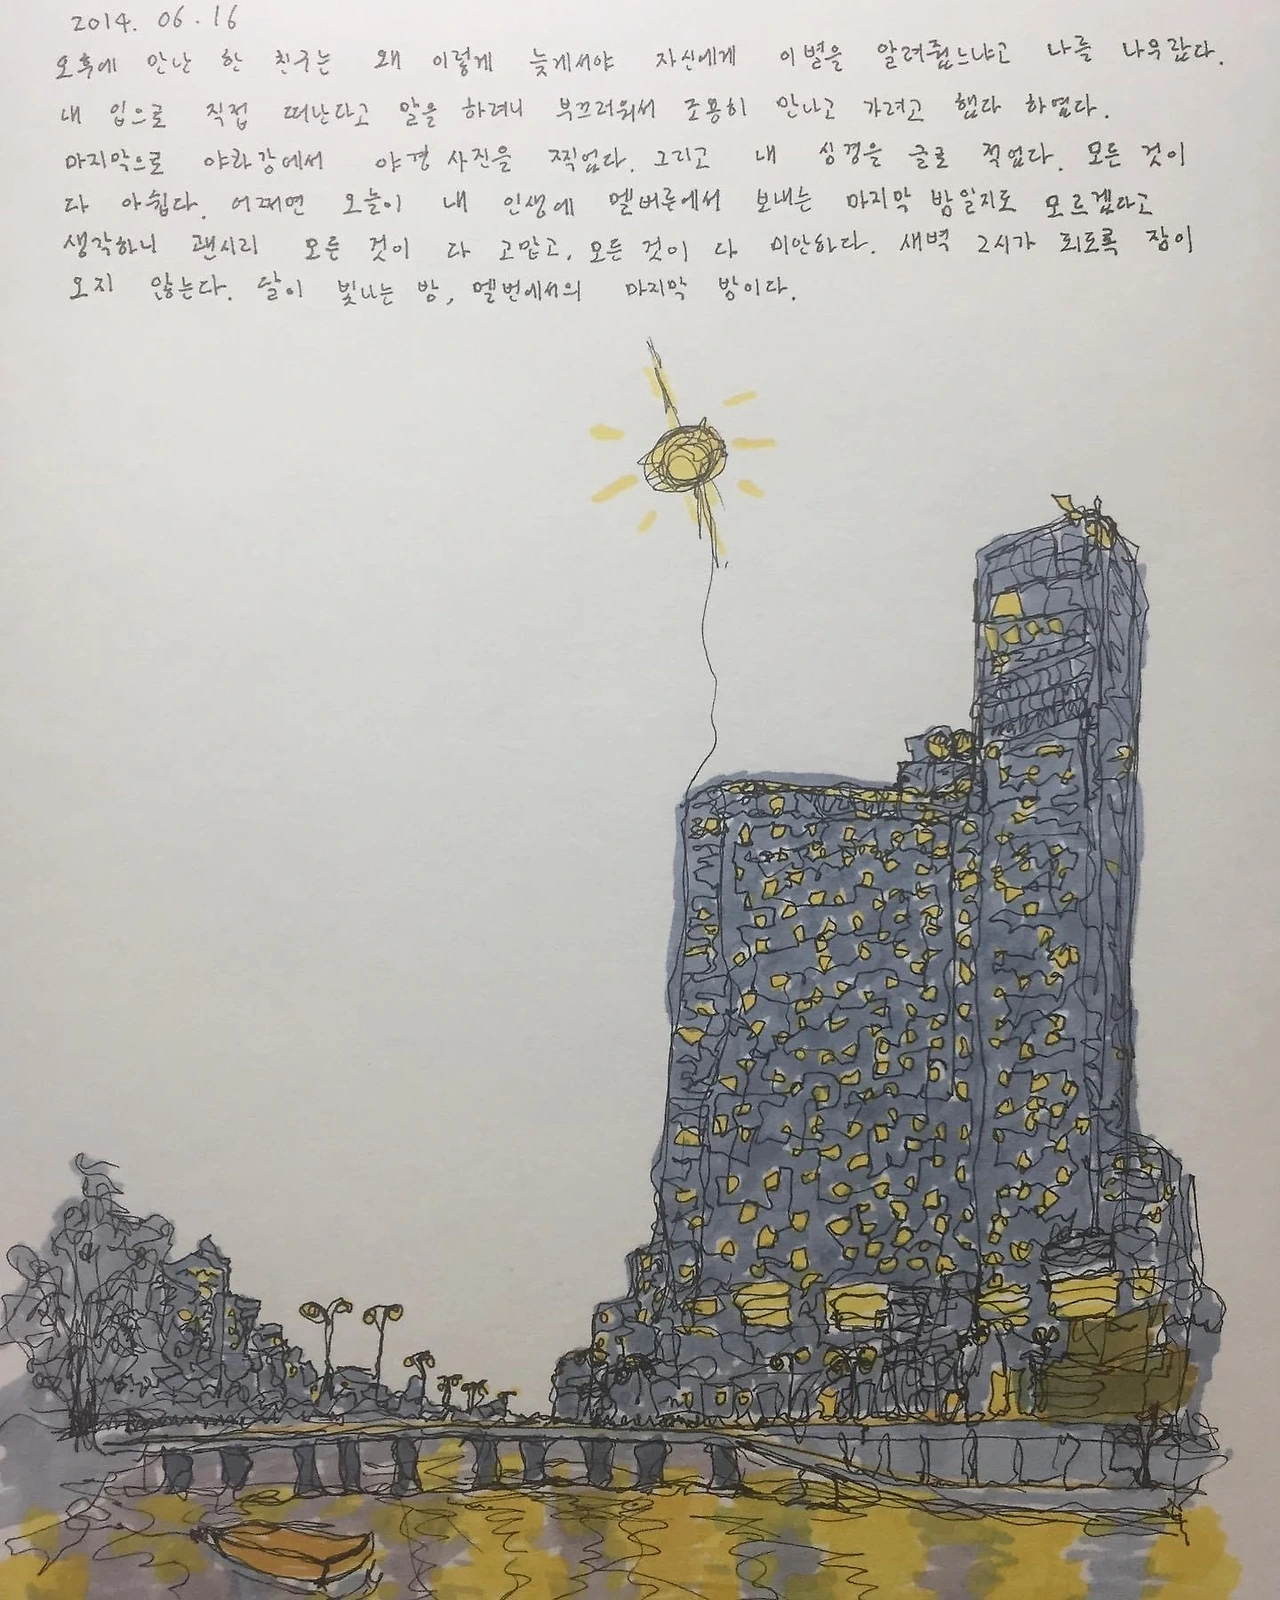 2014. 06. 16
오후에 만난 한 친구는 왜 이렇게 늦게서야 자신에게 이별을 알려줬느냐고 나를 나무랐다.
내 입으로 직접 떠난다고 말을 하려니 부끄러워서 조용히 만나고 가려고 했다 하였다.
마지막으로 야라강에서 야경 사진을 찍었다. 그리고 내 심경을 글로 적었다. 모든 것이
다 아쉽다. 어쩌면 오늘이 내 인생에 멜버른에서 보내는 마지막 밤일지도 모르겠다고
생각하니 괜시리 모든 것이 다 고맙고, 모든 것이 다 미안하다. 새벽 2시가 되도록 잠이
오지 않는다. 달이 빛나는 밤, 멜번에서의 마지막 밤이다.